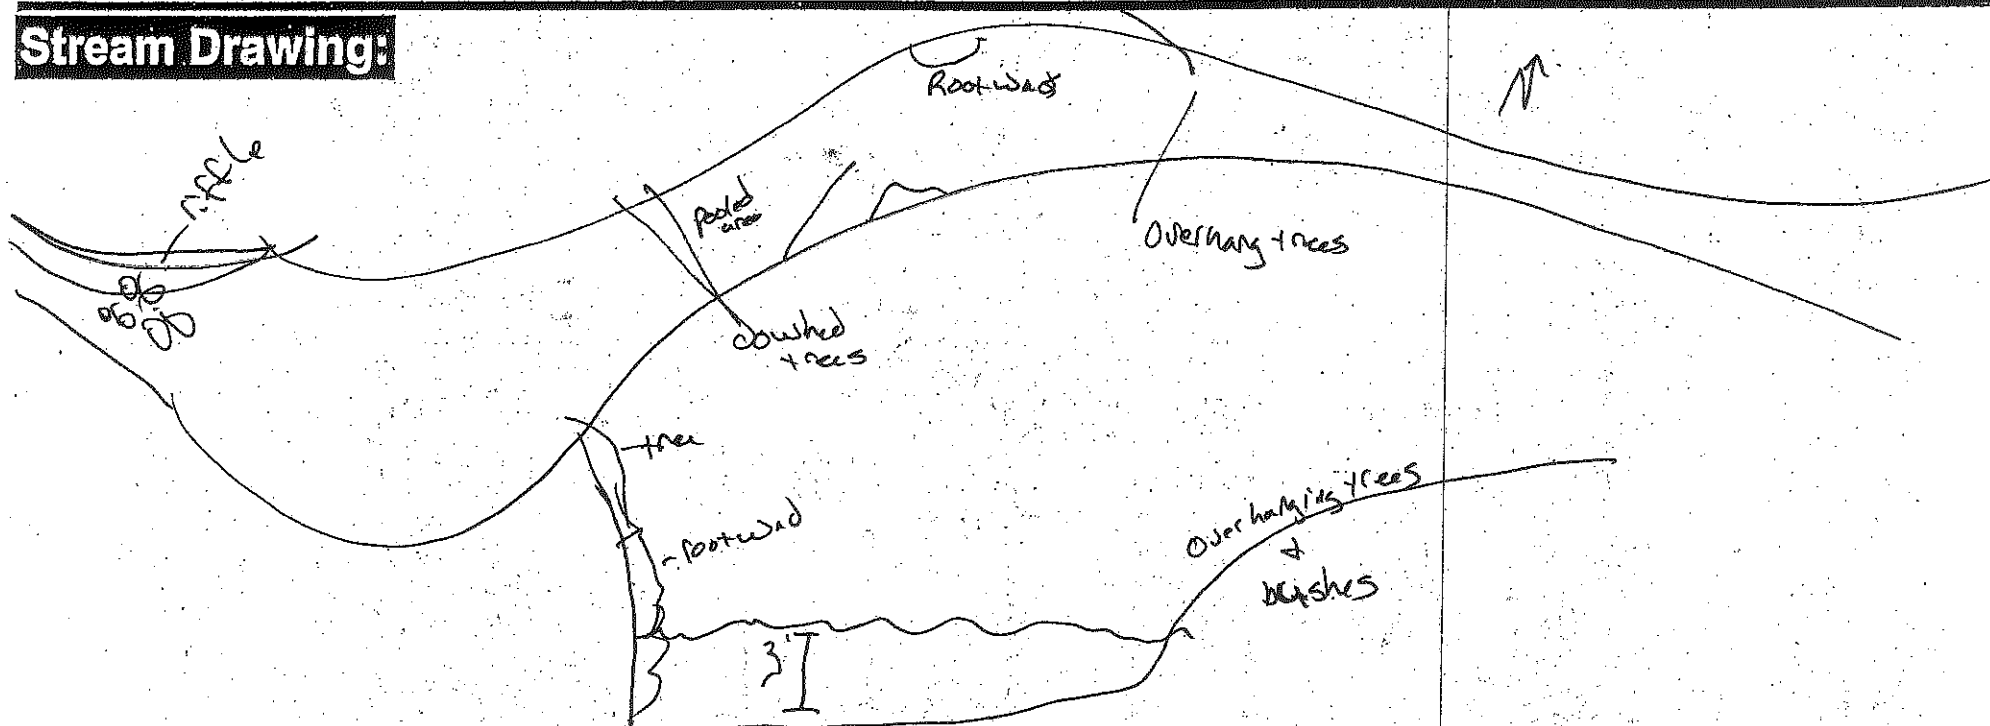 Stream Drawing:
riffle
Rootwad
pooled
area
Overhang trees
downed
trees
tree
rootwad
Overhanging trees
&
bushes
3'